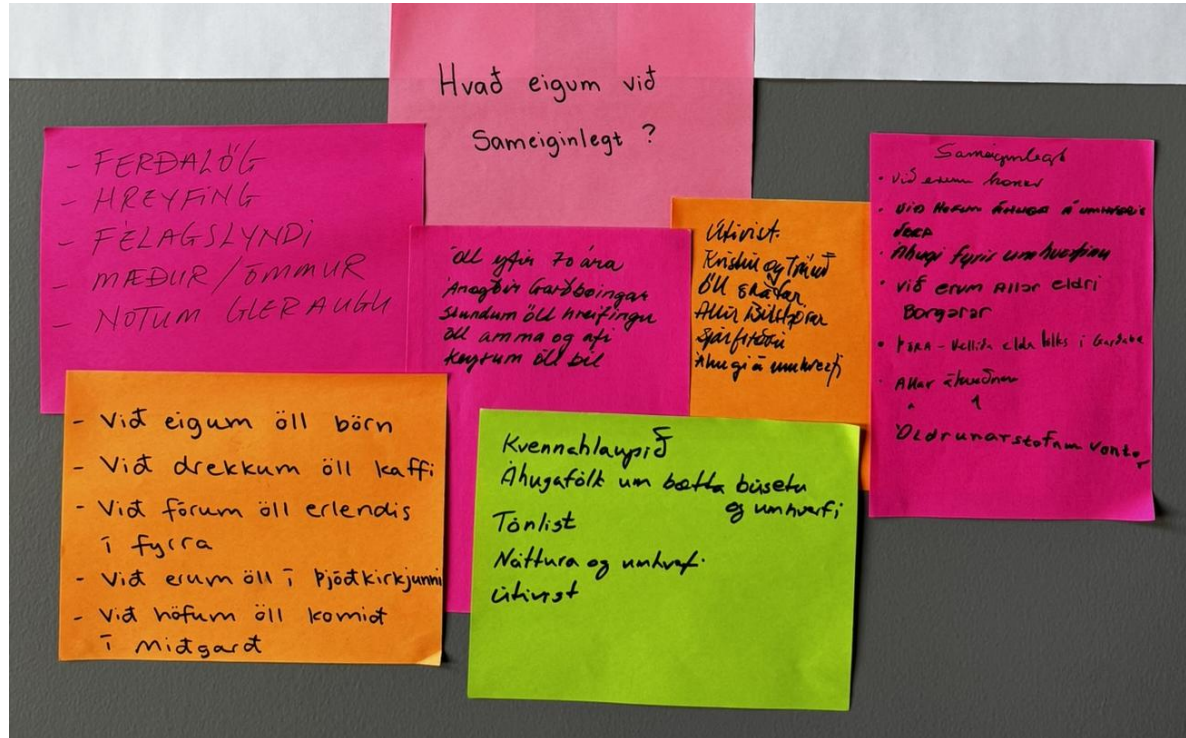 Hvað eigum við
Sameiginlegt ?
- FERÐALÖG
- HREYFING
- FÉLAGSLYNDI
- MÆÐUR / ÖMMUR
- NOTUM GLERAUGU
Öll yfir 70 ára
Ánægðir Garðbæingar
Stundum öll hreifingu
Öll amma og afi
Keyrum öll bíl
Útivist.
Kristin og
Öll
Allir Bílstjórar
Áhugi á umhverfi
Sameiginlegt
· Við erum konur
· Við HÖFUM ÁHUGA Á UMHVERFIS
· Áhugi fyrir umhverfinu
· Við erum Allar eldri
Borgarar
· eldra fólks í Garðabæ
· Allar ákveðnar
Öldrunarstofnun Vantar
- Við eigum öll börn
- Við drekkum öll kaffi
- Við fórum öll erlendis
í fyrra
- Við erum öll í Þjóðkirkjunni
- Við höfum öll komið
í Miðgarð
Kvennahlaupið
Áhugafólk um bætta búsetu
og umhverfi
Tónlist
Náttura og umhvef.
Útivist